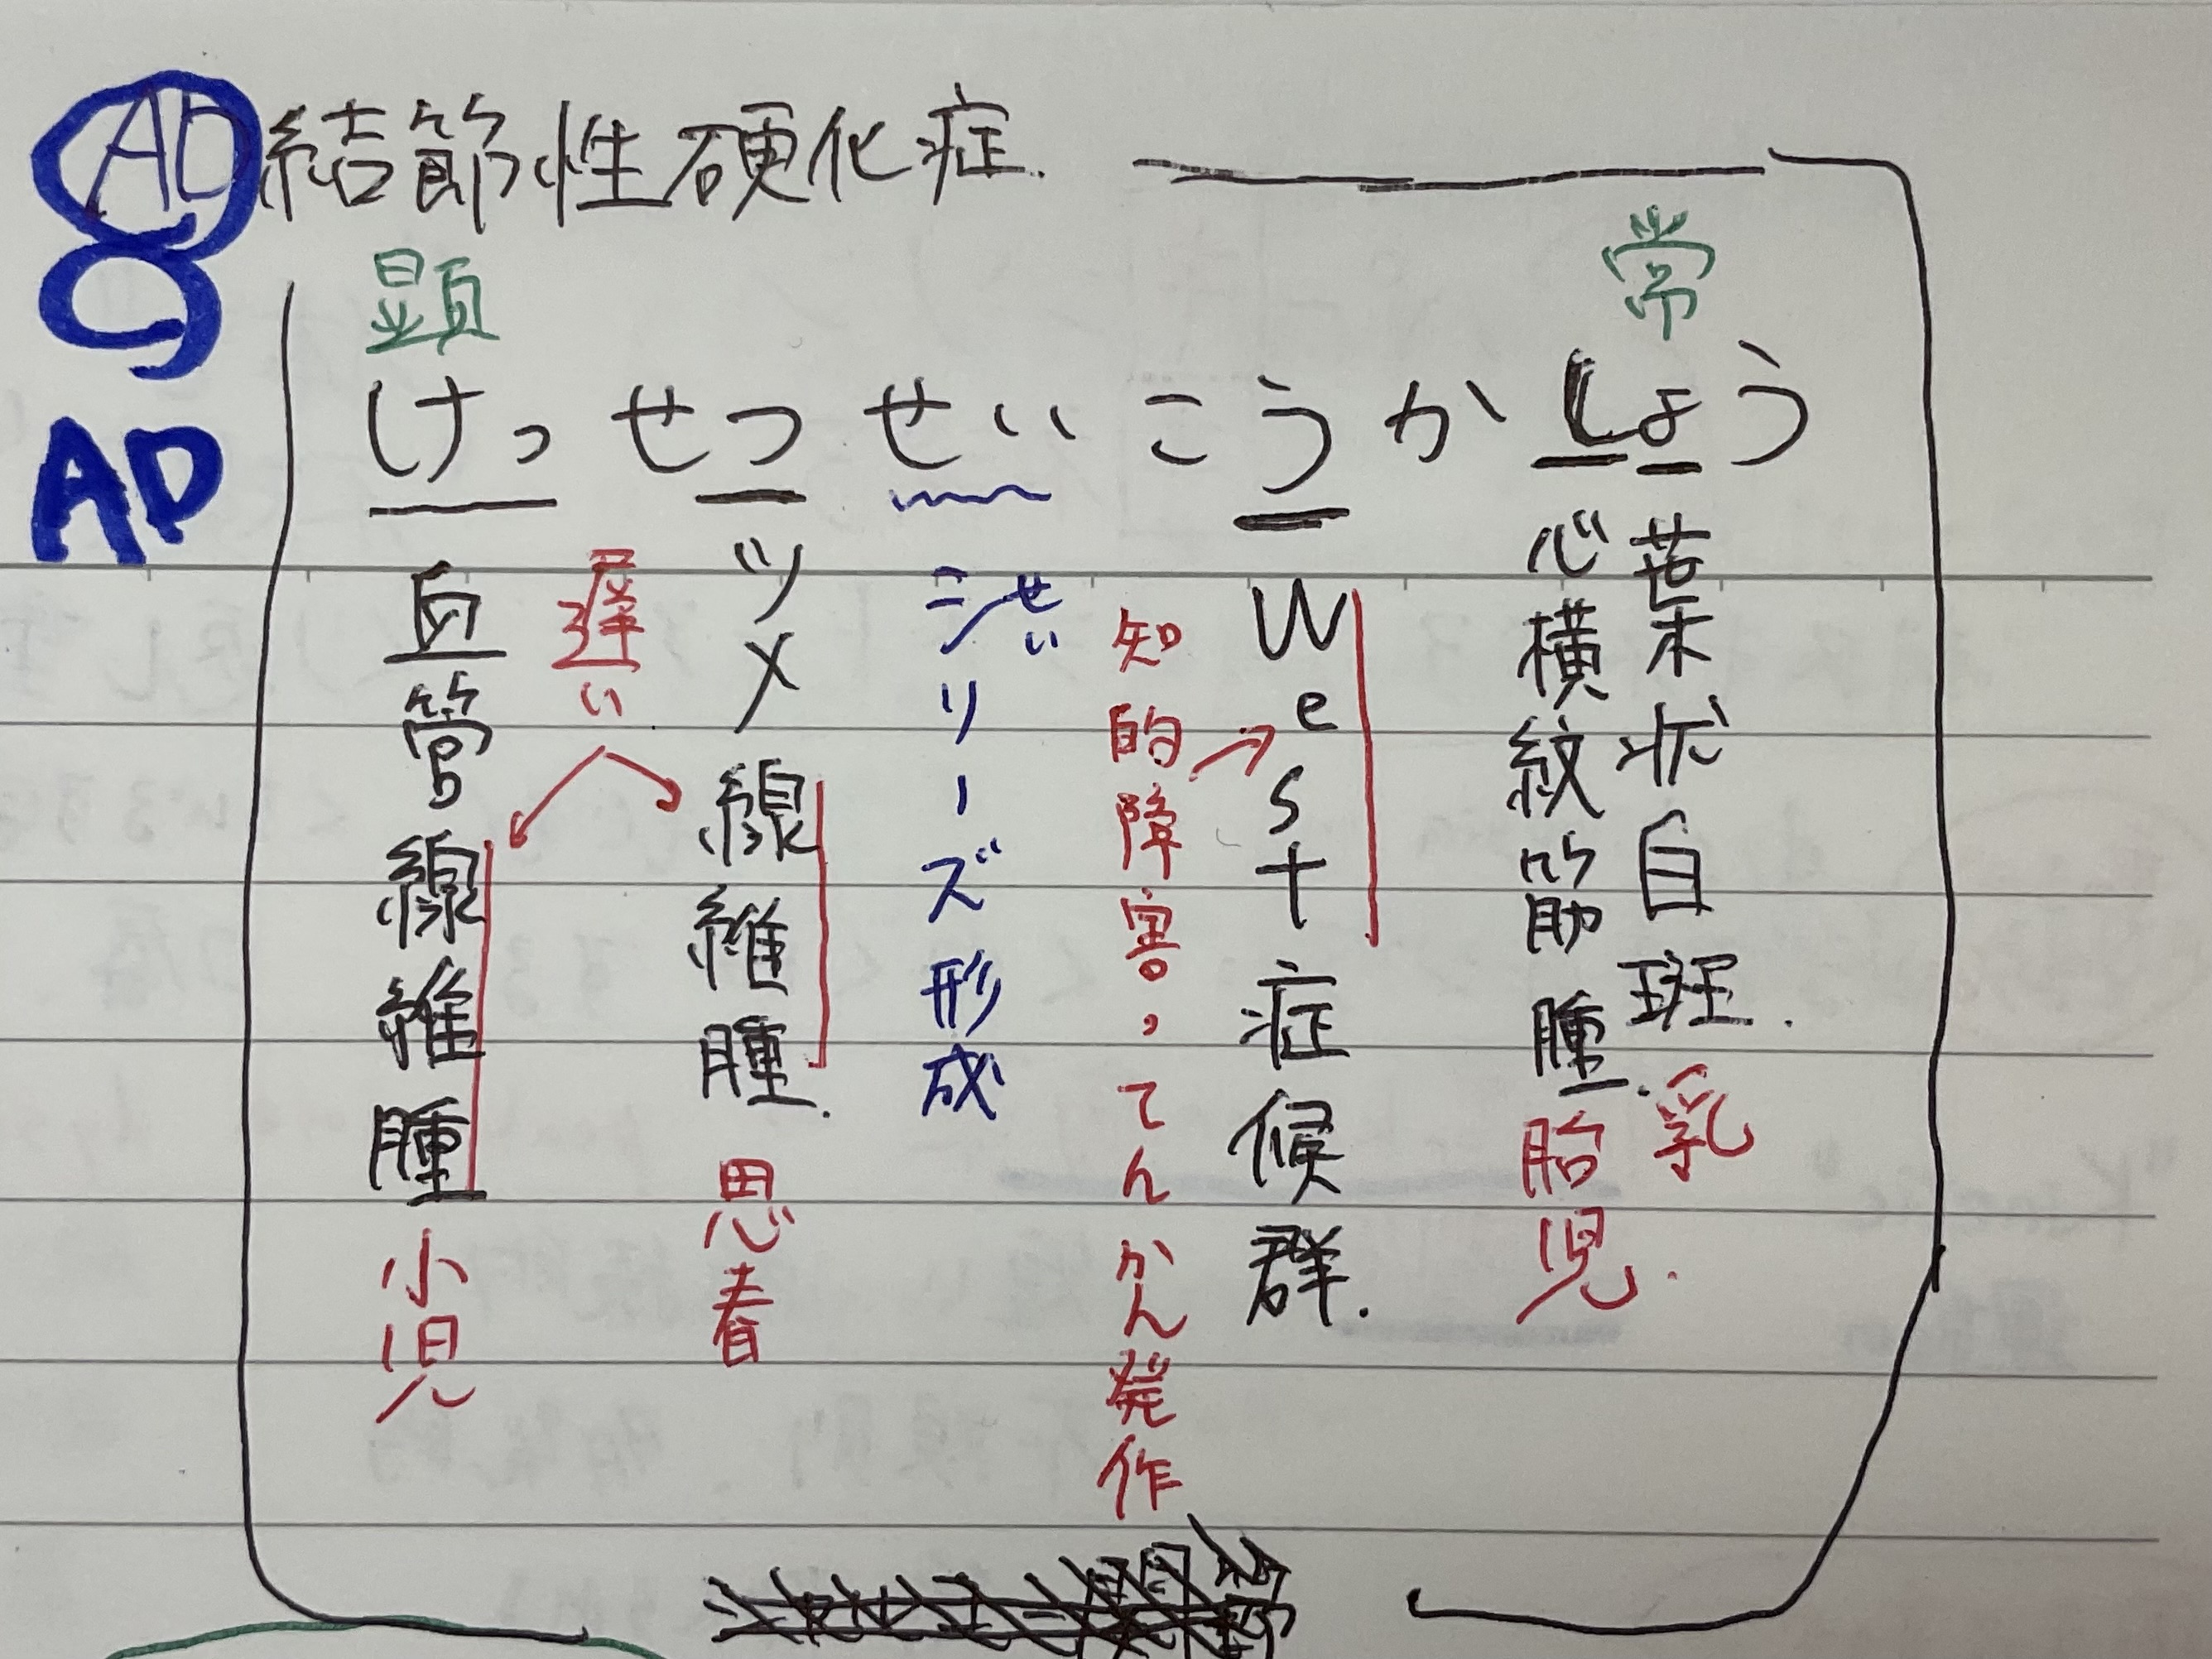 AD 結節性硬化症.
AD
顕
常
けっせつせいこうかしょう
血管線維腫 小児
遅い
ツメ線維腫. 思春
せい
シリーズ形成
知的障害。, てんかん発作
West症候群.
心横紋筋腫. 胎児.
葉状白斑. 乳